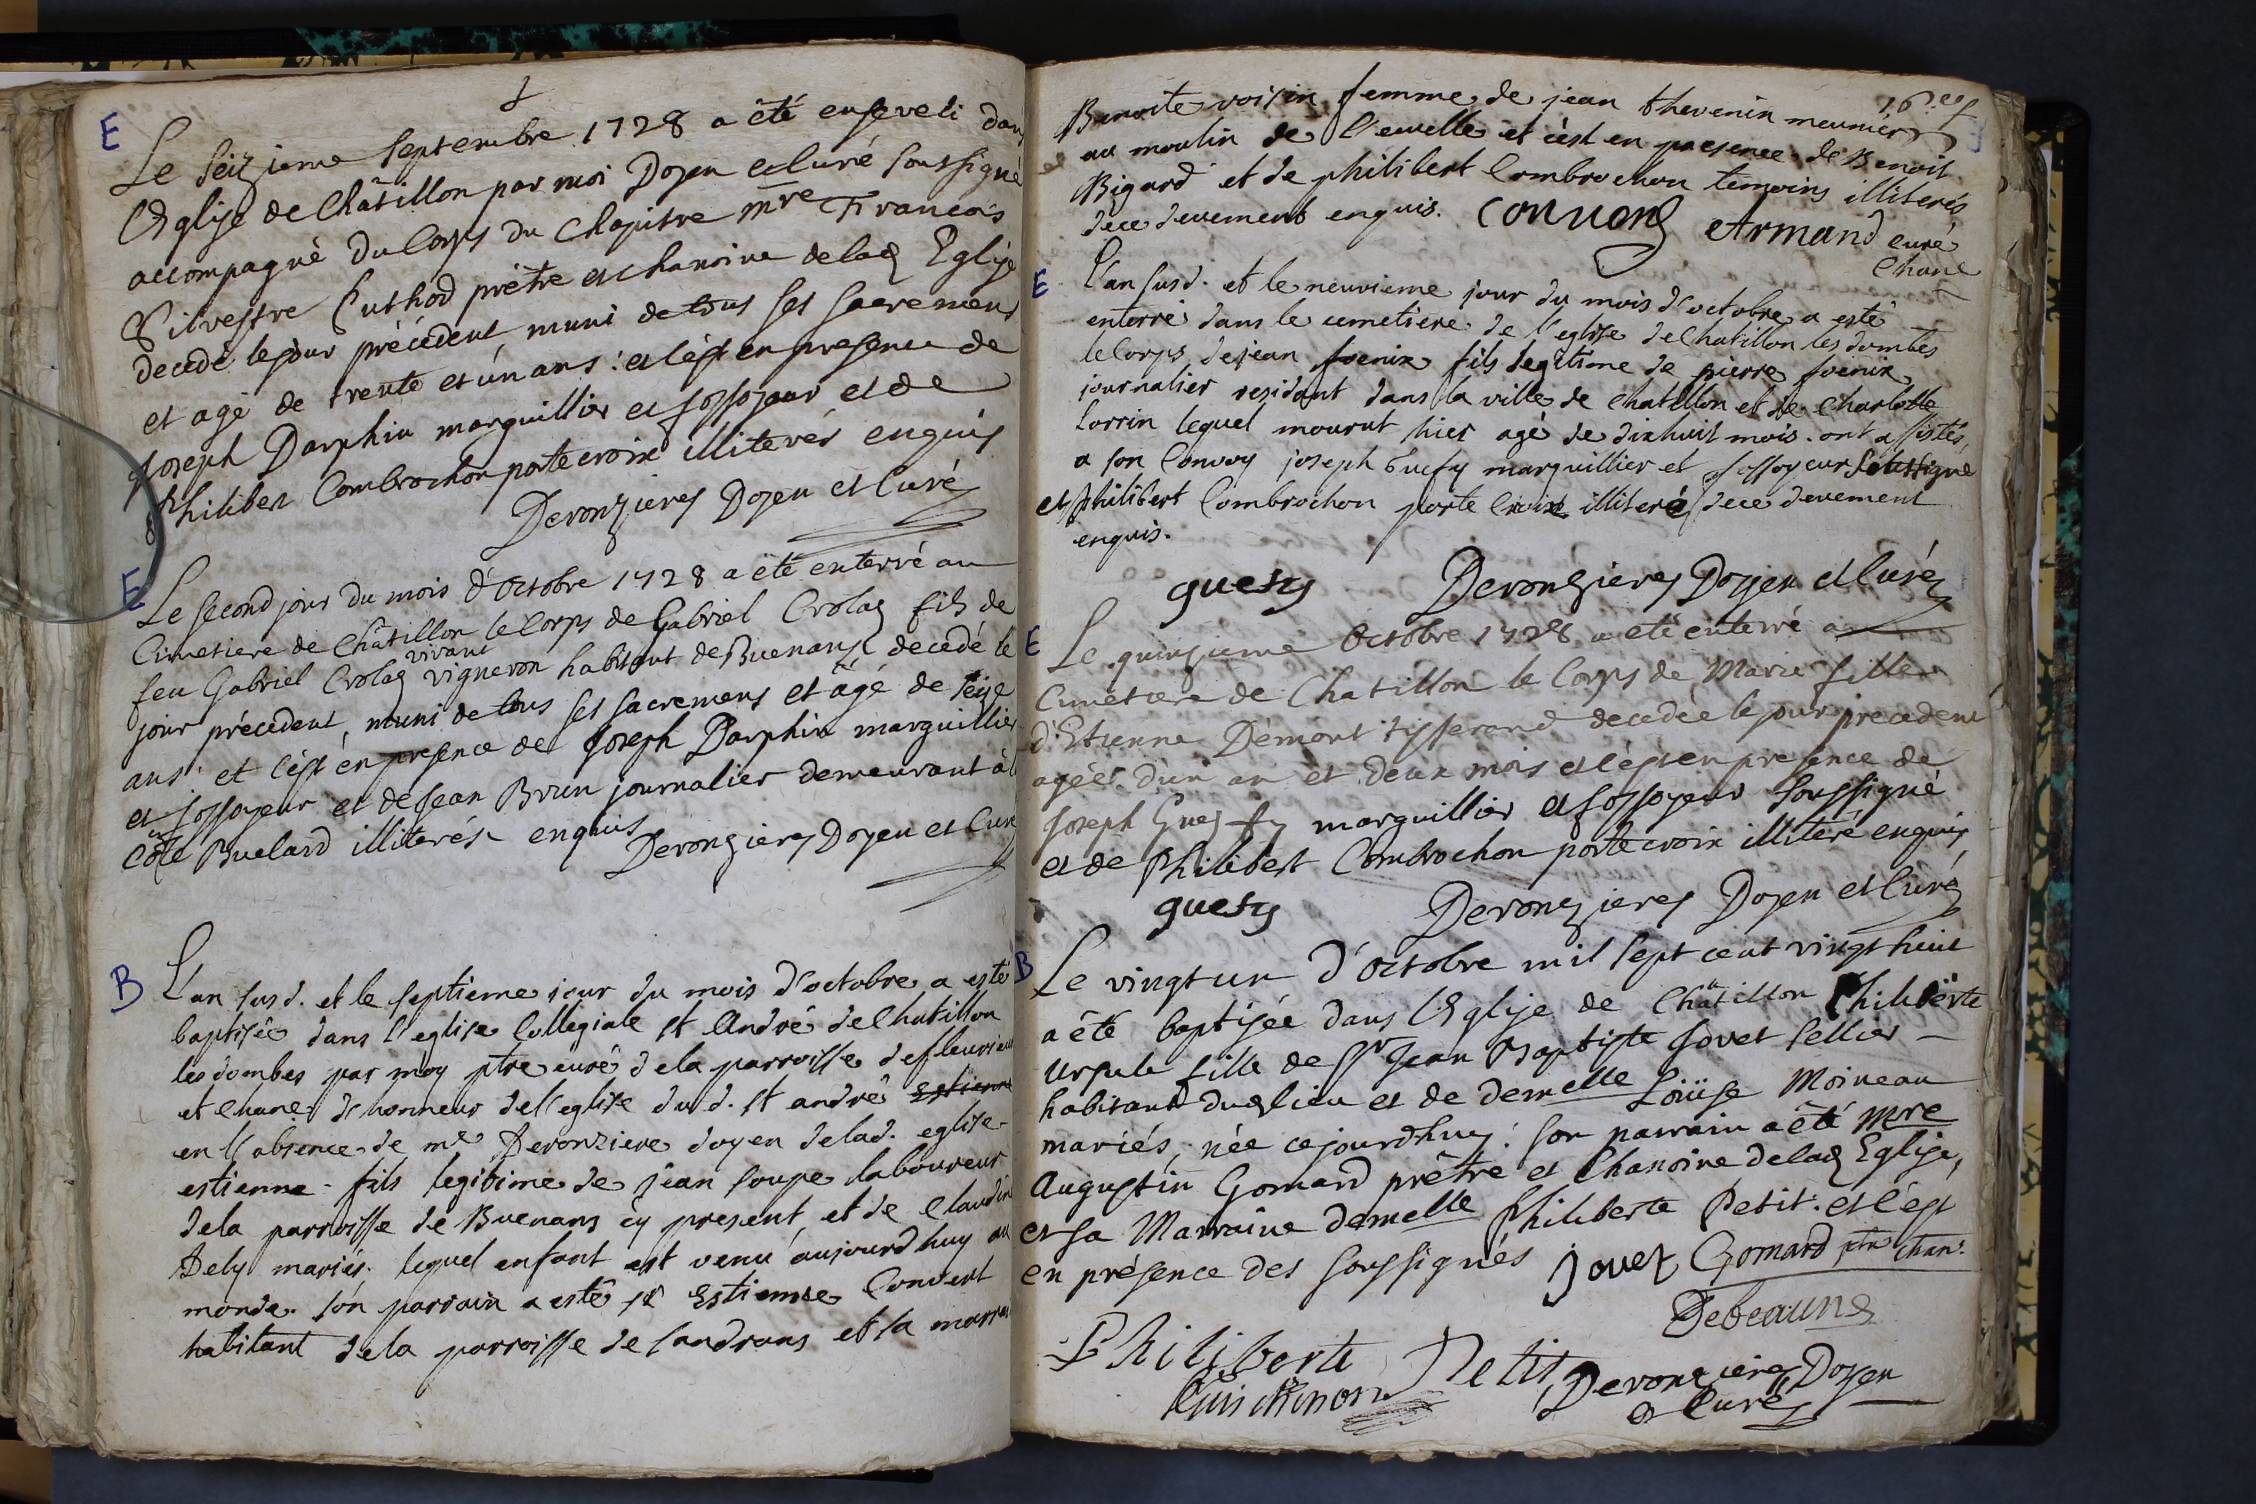 E
Le seizieme Septembre 1728 a été enseveli dans
l'Eglise de Châtillon par moi Doyen et Curé soussigné
accompagné du Corps du Chapitre mre Francois
Silvestre Cuthod prêtre et chanoine de lad Eglise
decedé le jour précédent, muni de tous ses sacremens
et agé de trente et un ans : et c'est en presence de
Joseph Darphin marguillier et fossoyeur et de
Philibert Combrochon porte croix illiterés enquis
Deronzieres Doyen et Curé
E
Le second jour du mois d'Octobre 1728 a été enterré au
Cimetiere de Châtillon le Corps de Gabriel Crolas fils de
feu Gabriel Crolas vivant vigneron habitant de Buenans decedé le
jour précedent, muni de tous ses sacremens et âgé de seize
ans. et c'est en presence de Joseph Darphin marguillier
et fossoyeur et de Jean Brun journalier demeurant à
Côte Buelard illiterés enquis
Deronzieres Doyen et Curé
B
L'an susd. et le septieme jour du mois d'octobre a esté
baptisée dans l'eglise Collegiale st André de Chatillon
les dombes par moy ptre curé de la parroisse de fleurieux
et chane d'honneur de l'eglise dud. st andré Estienne
en l'absence de mre Deronziere doyen de lad. eglise
estienne fils legitime de jean soupe laboureur
de la parroisse de Buenans cy present, et de claudine
Dely mariés. lequel enfant est venu aujourd'huy au
monde. son parrain a esté sr Estienne Convert
habitant de la parroisse de sandrans et sa marraine
16 ces
Benoite voisin femme de jean thevenin meunier
au moulin de l'euvelle et c'est en presence de Benoit
Bigard et de philibert Combrochon temoins illiterés
de ce deuement enquis. Conuerz Armand curé
Chane
E
L'an susd. et le neuvieme jour du mois d'octobre a esté
enterré dans le cemetiere de l'eglise de Chatillon les dombes
le Corps de jean foenix fils legitime de pierre foenix
journalier residant dans la ville de chatillon et de Charlotte
Lorrin lequel mourut hier agé de dixhuit mois. ont assistés
a son Convoy joseph Guesy marguillier et fossoyeur soussigné
et philibert Combrochon porte Croix illiteré de ce deuement
enquis.
guesy Deronzieres Doyen et Curé
E
Le quinzieme Octobre 1728 a eté enterré au
Cimetiere de Chatillon le Corps de Marie fille
d'Etienne Démont tisserand decedée le jour precedent
agée d'un an et deux mois et c'est en presence de
Joseph Guesy marguillier et fossoyeur soussigné
et de Philibert Combrochon porte croix illiteré enquis
guesy Deronzieres Doyen et Curé
B
Le vingt un d'Octobre mil sept cent vingt huit
a été baptisée dans l'Eglise de Châtillon Philiberte
Ursule fille de Sr Jean Baptiste Jovet sellier
habitant dud lieu et de demelle Loüise Moineau
mariés, née cejourdhuy : son parrain a été Mre
Augustin Gomard prêtre et Chanoine de lad Eglise,
et sa Marraine demelle Philiberte Petit. et c'est
en présence des soussignés Jouet Gomard ptre chan.
Debeaune
Philiberte Petit Deronzieres Doyen
Guichenon et Curé